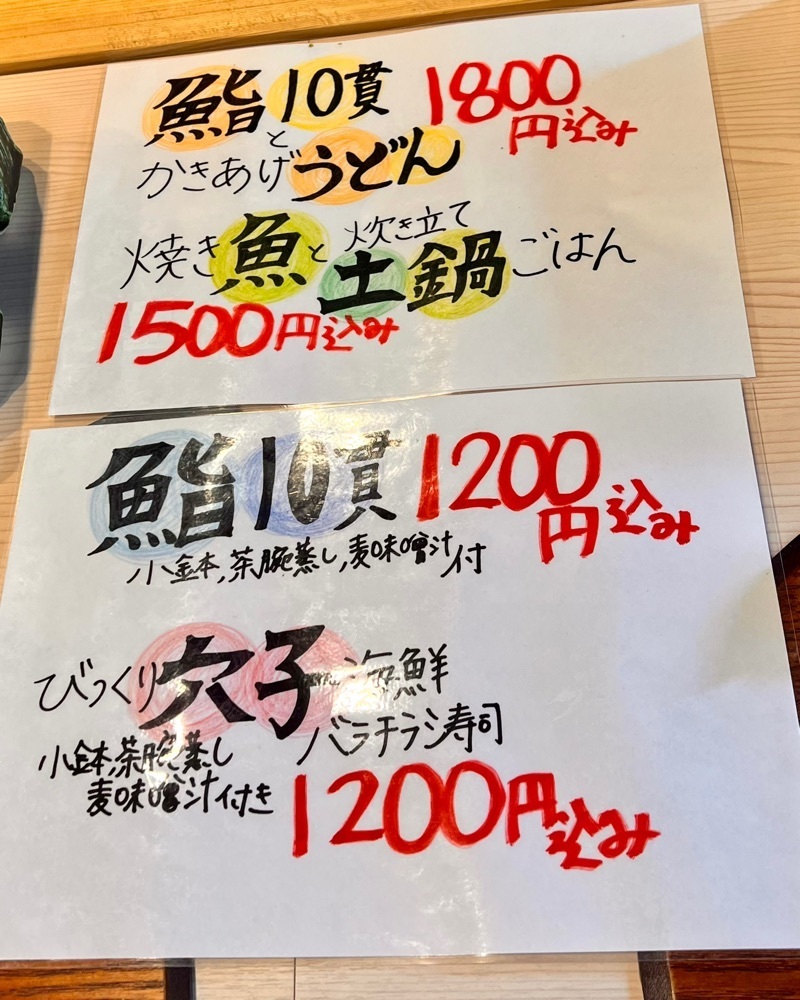 鮨10貫 1800
と 円込み
かきあげうどん
焼き魚と炊き立て
土鍋ごはん
1500円込み
鮨10貫 1200
円込み
小鉢,茶腕蒸し,麦味噌汁付
びっくり穴子海鮮
バラチラシ寿司
小鉢,茶腕蒸し
麦味噌汁付き
1200円込み